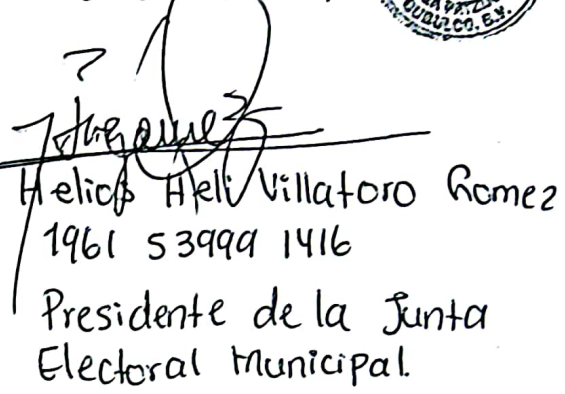 Helios Heli Villatoro Gomez
1961 53999 1416
Presidente de la Junta
Electoral Municipal.